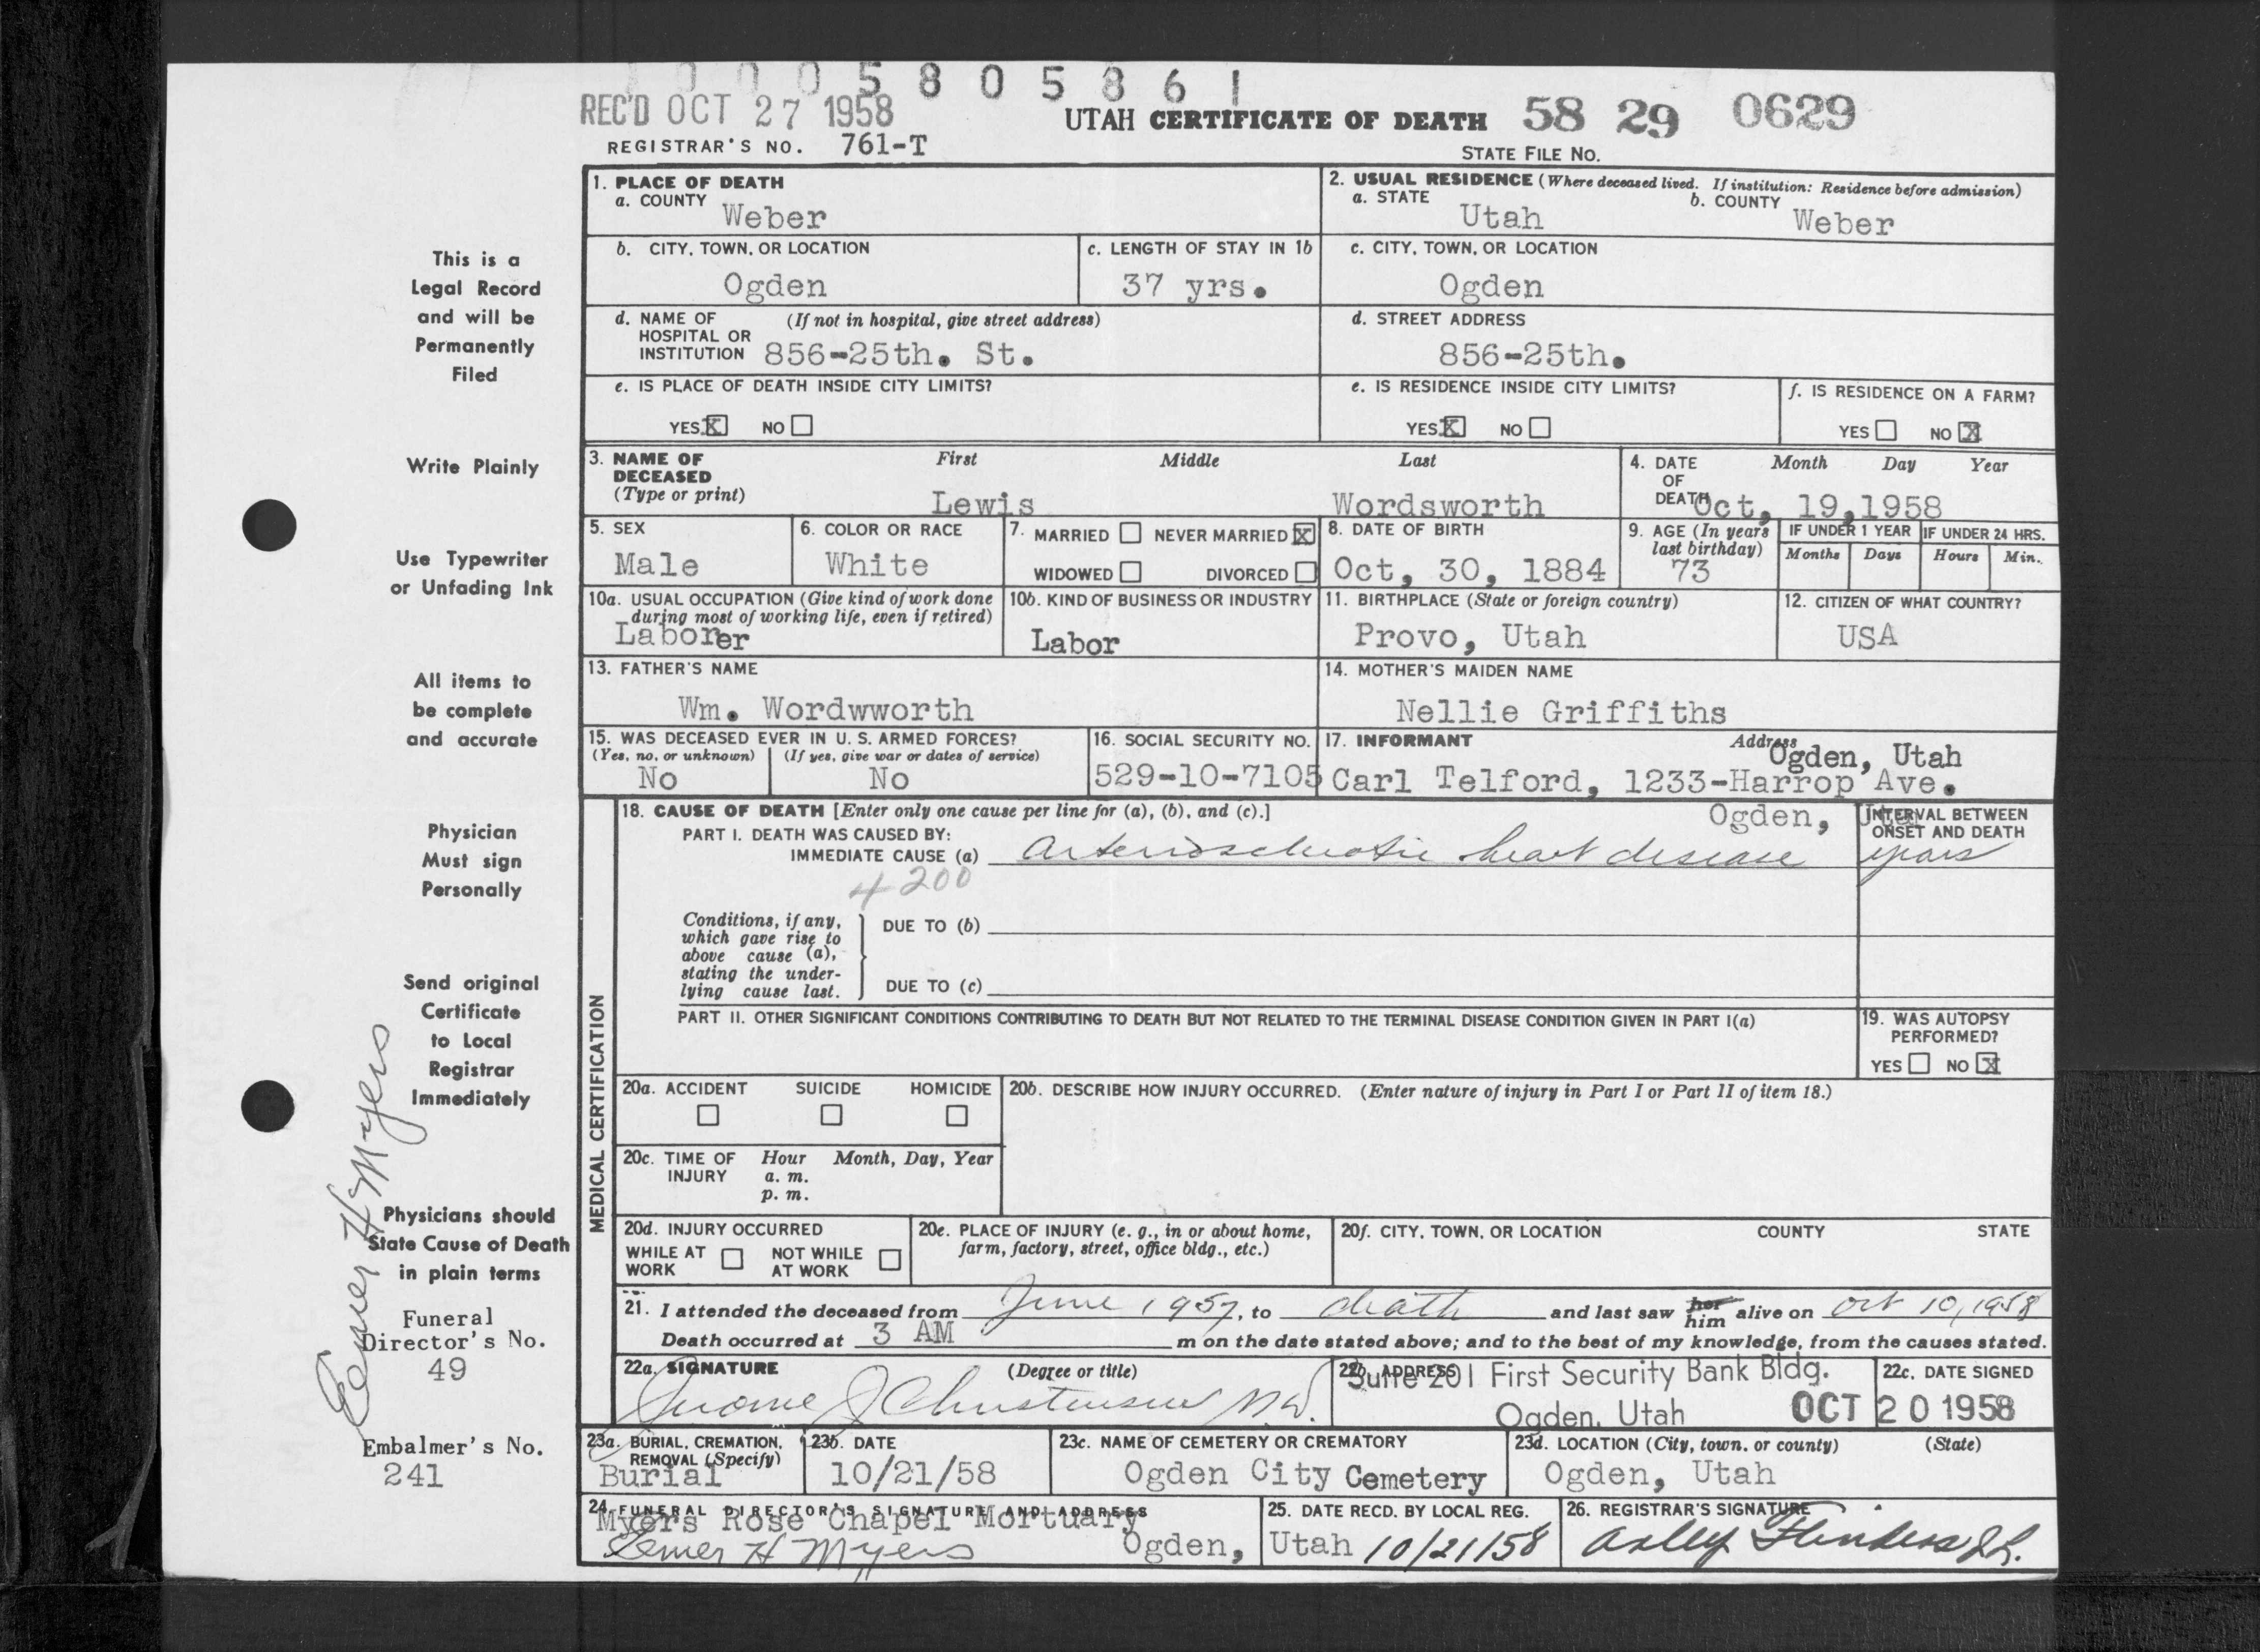 0 0 0 5 8 0 5 8 6 1
REC'D OCT 27 1958
UTAH CERTIFICATE OF DEATH 58 29 0629
REGISTRAR'S NO. 761-T
STATE FILE NO.
This is a
Legal Record
and will be
Permanently
Filed
Write Plainly
Use Typewriter
or Unfading Ink
All items to
be complete
and accurate
Physician
Must sign
Personally
Send original
Certificate
to Local
Registrar
Immediately
Physicians should
State Cause of Death
in plain terms
Funeral
Director's No.
49
Embalmer's No.
241
Elmer H Myers
1. PLACE OF DEATH
a. COUNTY Weber
2. USUAL RESIDENCE (Where deceased lived. If institution: Residence before admission)
a. STATE Utah b. COUNTY Weber
b. CITY, TOWN, OR LOCATION Ogden
c. LENGTH OF STAY IN 1b 37 yrs.
c. CITY, TOWN, OR LOCATION Ogden
d. NAME OF HOSPITAL OR INSTITUTION (If not in hospital, give street address) 856-25th. St.
d. STREET ADDRESS 856-25th.
e. IS PLACE OF DEATH INSIDE CITY LIMITS?
YES X NO
e. IS RESIDENCE INSIDE CITY LIMITS?
YES X NO
f. IS RESIDENCE ON A FARM?
YES NO X
3. NAME OF DECEASED (Type or print) First Middle Last
Lewis Wordsworth
4. DATE OF DEATH Month Day Year
Oct, 19,1958
5. SEX Male
6. COLOR OR RACE White
7. MARRIED NEVER MARRIED X
WIDOWED DIVORCED
8. DATE OF BIRTH Oct, 30, 1884
9. AGE (In years last birthday) 73
IF UNDER 1 YEAR Months Days
IF UNDER 24 HRS. Hours Min.
10a. USUAL OCCUPATION (Give kind of work done during most of working life, even if retired)
Laborer
10b. KIND OF BUSINESS OR INDUSTRY
Labor
11. BIRTHPLACE (State or foreign country)
Provo, Utah
12. CITIZEN OF WHAT COUNTRY?
USA
13. FATHER'S NAME
Wm. Wordwworth
14. MOTHER'S MAIDEN NAME
Nellie Griffiths
15. WAS DECEASED EVER IN U. S. ARMED FORCES?
(Yes, no, or unknown) (If yes, give war or dates of service)
No No
16. SOCIAL SECURITY NO.
529-10-7105
17. INFORMANT Address
Ogden, Utah
Carl Telford, 1233-Harrop Ave.
Ogden,
MEDICAL CERTIFICATION
18. CAUSE OF DEATH [Enter only one cause per line for (a), (b), and (c).]
PART I. DEATH WAS CAUSED BY:
IMMEDIATE CAUSE (a) Arteriosclerotic heart disease
INTERVAL BETWEEN ONSET AND DEATH
years
4200
Conditions, if any, which gave rise to above cause (a), stating the underlying cause last.
DUE TO (b)
DUE TO (c)
PART II. OTHER SIGNIFICANT CONDITIONS CONTRIBUTING TO DEATH BUT NOT RELATED TO THE TERMINAL DISEASE CONDITION GIVEN IN PART I(a)
19. WAS AUTOPSY PERFORMED?
YES NO X
20a. ACCIDENT SUICIDE HOMICIDE
20b. DESCRIBE HOW INJURY OCCURRED. (Enter nature of injury in Part I or Part II of item 18.)
20c. TIME OF INJURY Hour Month, Day, Year
a. m.
p. m.
20d. INJURY OCCURRED
WHILE AT WORK NOT WHILE AT WORK
20e. PLACE OF INJURY (e. g., in or about home, farm, factory, street, office bldg., etc.)
20f. CITY, TOWN, OR LOCATION COUNTY STATE
21. I attended the deceased from June 1957, to death and last saw her him alive on Oct 10, 1958
Death occurred at 3 AM m on the date stated above; and to the best of my knowledge, from the causes stated.
22a. SIGNATURE (Degree or title)
Jerome J Christensen M.D.
22b. ADDRESS Suite 201 First Security Bank Bldg.
Ogden, Utah
22c. DATE SIGNED
OCT 20 1958
23a. BURIAL, CREMATION, REMOVAL (Specify)
Burial
23b. DATE
10/21/58
23c. NAME OF CEMETERY OR CREMATORY
Ogden City Cemetery
23d. LOCATION (City, town, or county) (State)
Ogden, Utah
24. FUNERAL DIRECTOR'S SIGNATURE AND ADDRESS
Myers Rose Chapel Mortuary
Elmer H Myers Ogden, Utah
25. DATE RECD. BY LOCAL REG.
10/21/58
26. REGISTRAR'S SIGNATURE